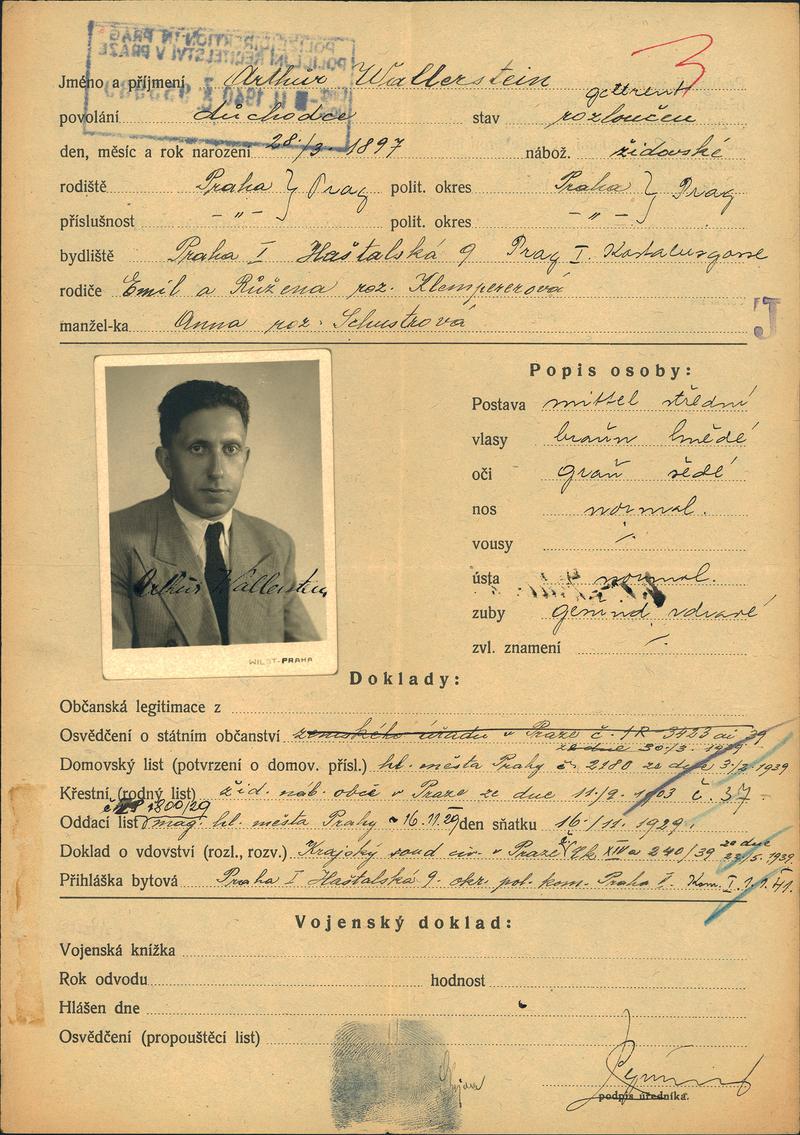 POLIZEIDIREKTION IN PRAG
POLICEJNÍ ŘEDITELSTVÍ V PRAZE
3
Jméno a příjmení Arthur Wallerstein
getrennt
povolání důchodce stav rozloučen
den, měsíc a rok narození 28./3. 1897 nábož. židovské
rodiště Praha } Prag polit. okres Praha } Prag
příslušnost -"- polit. okres -"-
bydliště Praha I Haštalská 9 Prag I.
rodiče Emil a Růžena roz. Klempererová
manžel-ka Anna roz. Schustrová
J
Popis osoby:
Postava mittel střední
vlasy braun hnědé
oči grau šedé
nos normal.
vousy ./.
ústa normal.
zuby gesund zdravé
zvl. znamení ./.
Arthur Wallerstein
WILST-PRAHA
Doklady:
Občanská legitimace z
Osvědčení o státním občanství zemského úřadu v Praze č.
ze dne 30./3. 1939
Domovský list (potvrzení o domov. přísl.) hl. města Prahy č. 2180 ze dne 3./2. 1939
Křestní (rodný list) žid. náb. obce v Praze ze dne 11./9. 1903 č. 37
1800/29
Oddací list mag. hl. města Prahy 16.11.29 den sňatku 16./11. 1929.
Doklad o vdovství (rozl., rozv.) Krajský soud civ. v Praze Ck XIV a 240/39 ze dne 22/5. 1939.
Přihláška bytová Praha I Haštalská 9. okr. pol. kom. Praha I. Kom. I. 1.1.41.
Vojenský doklad:
Vojenská knížka
Rok odvodu hodnost
Hlášen dne
Osvědčení (propouštěcí list)
podpis úředníka.